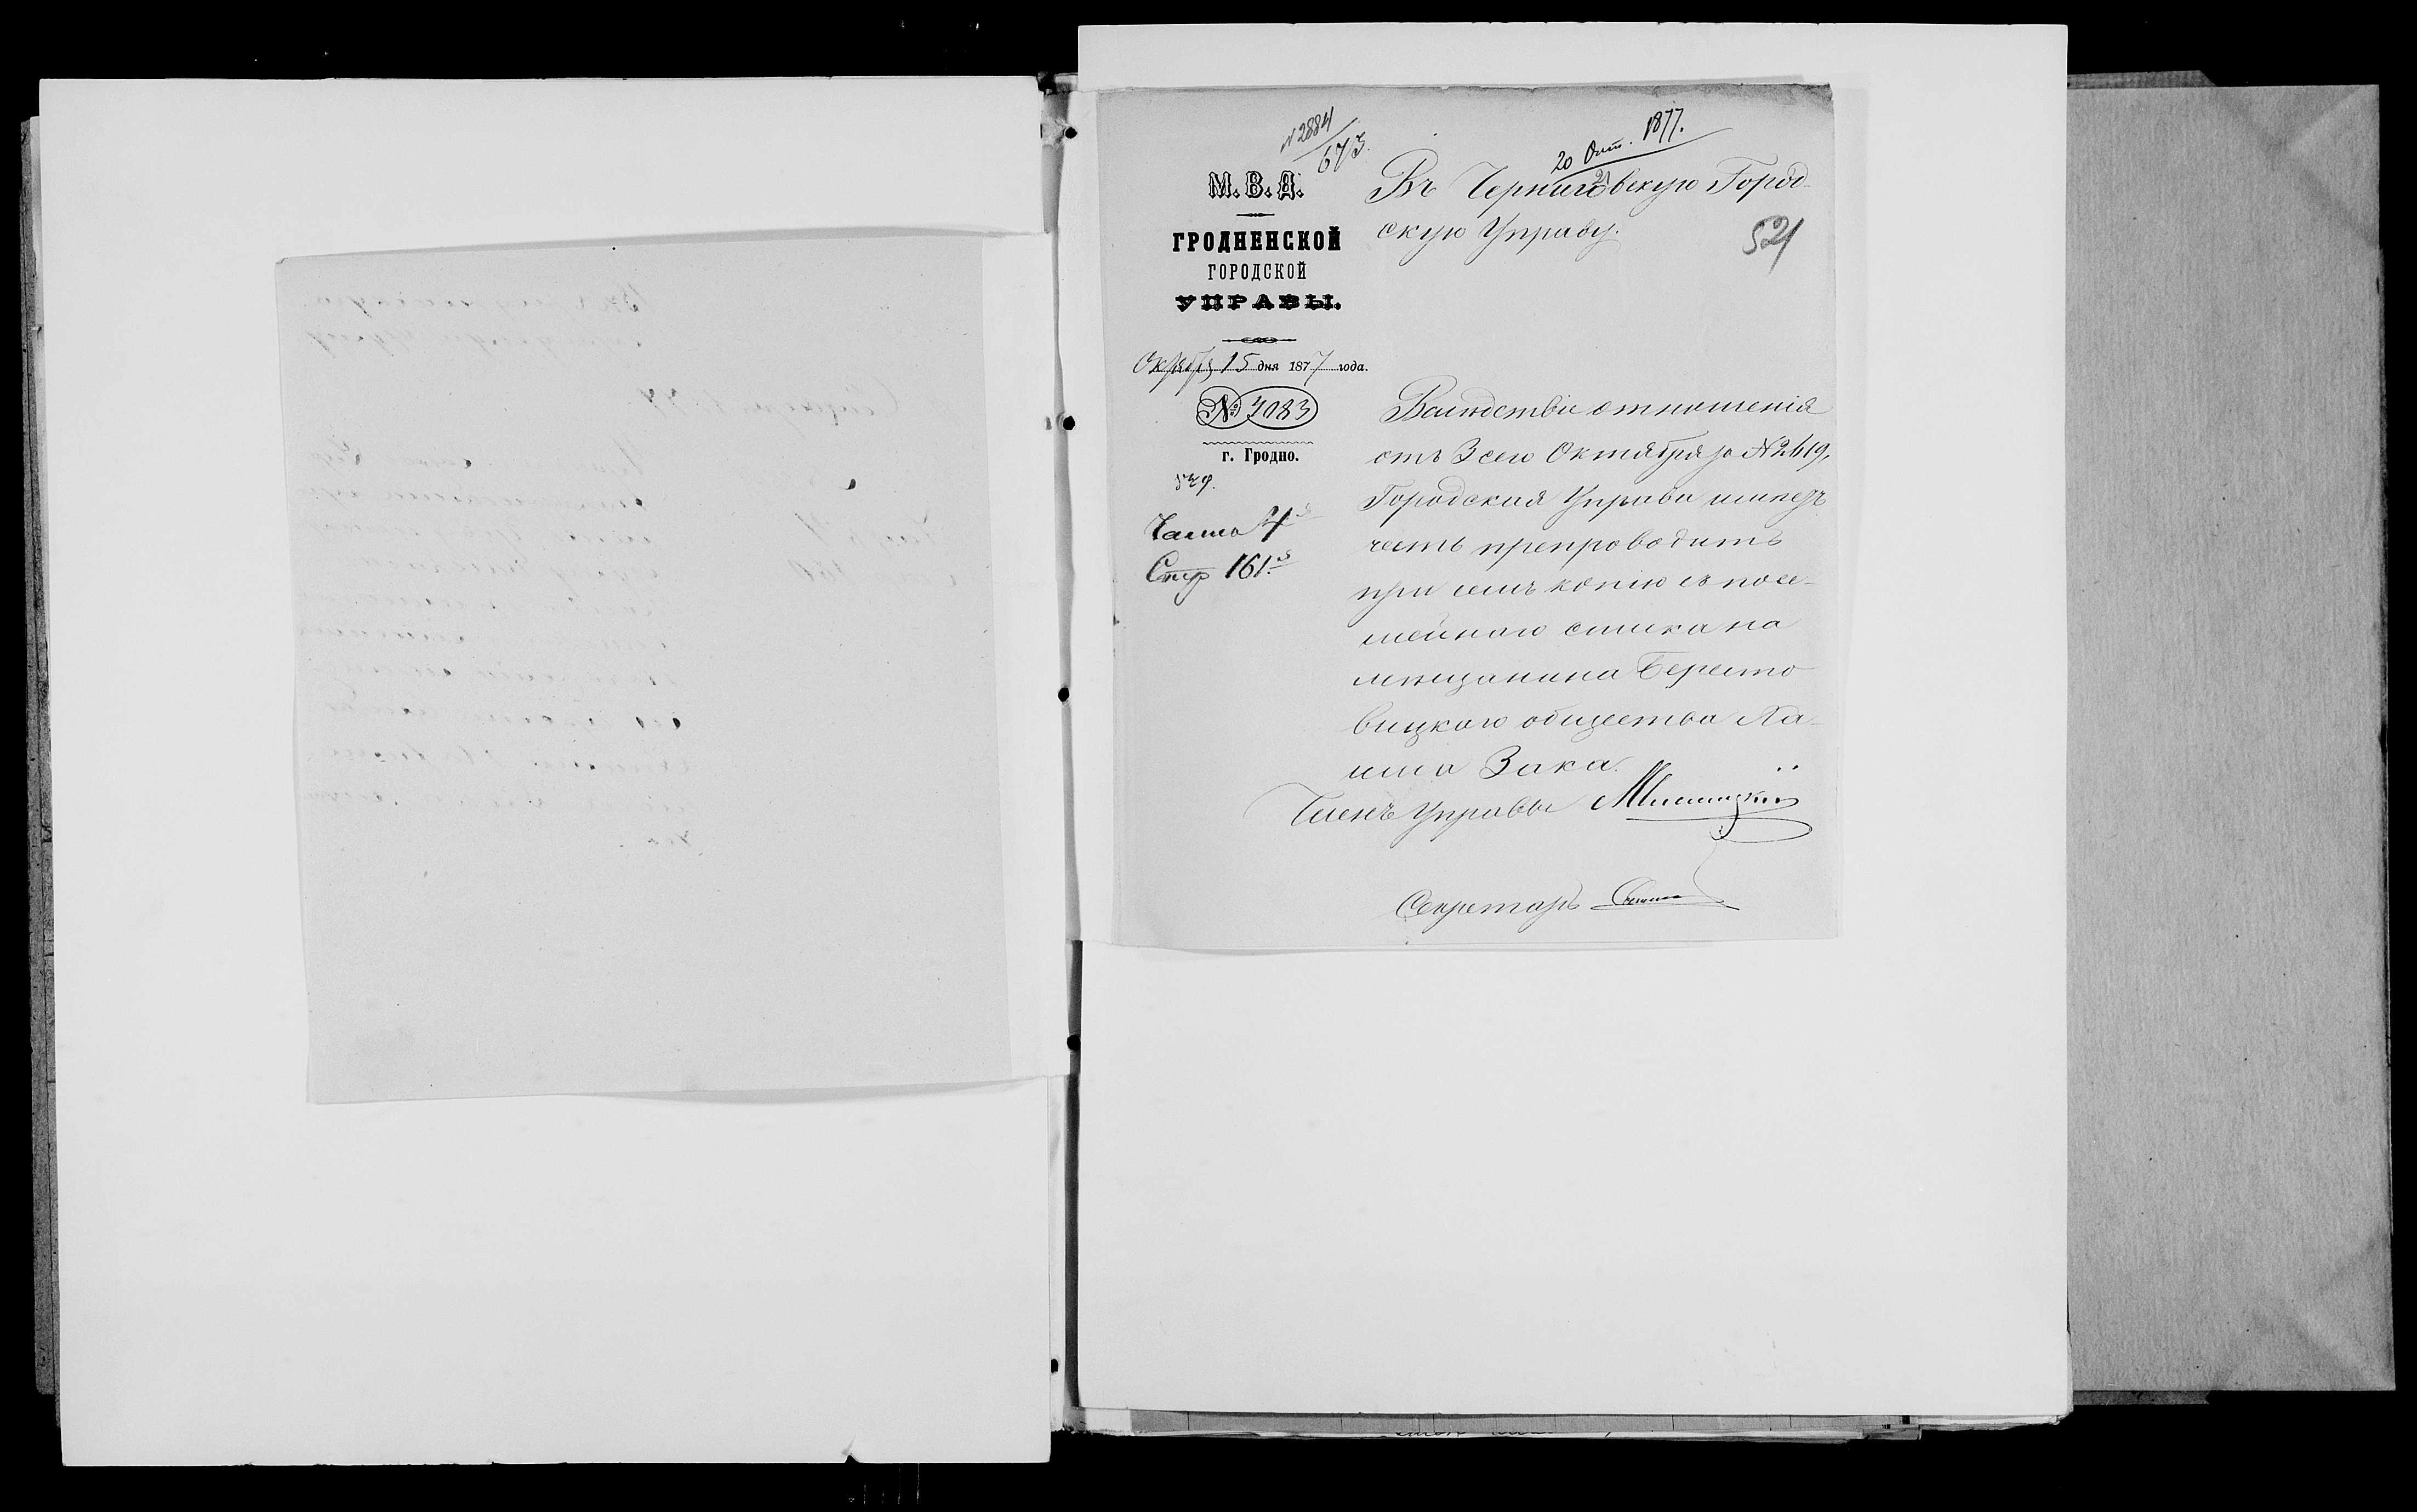 № 2884
673.
20 Окт. 1877.
М. В. Д.
ГРОДНЕНСКОЙ
ГОРОДСКОЙ
УПРАВЫ.
Октября 15 дня 1877 года.
№ 4083
г. Гродно.
Часть 4я
Стр 161.я
Въ Черниговскую Город-
скую Управу.
521
Вслѣдствіе отношенія
отъ 3 сего Октября за № 2619,
Городская Управа имѣетъ
честь препроводить
при семъ копію съ посе-
мейнаго списка на
мѣщанина Бересто
вицкаго общества Ха-
има Зака.
Членъ Управы
Секретарь